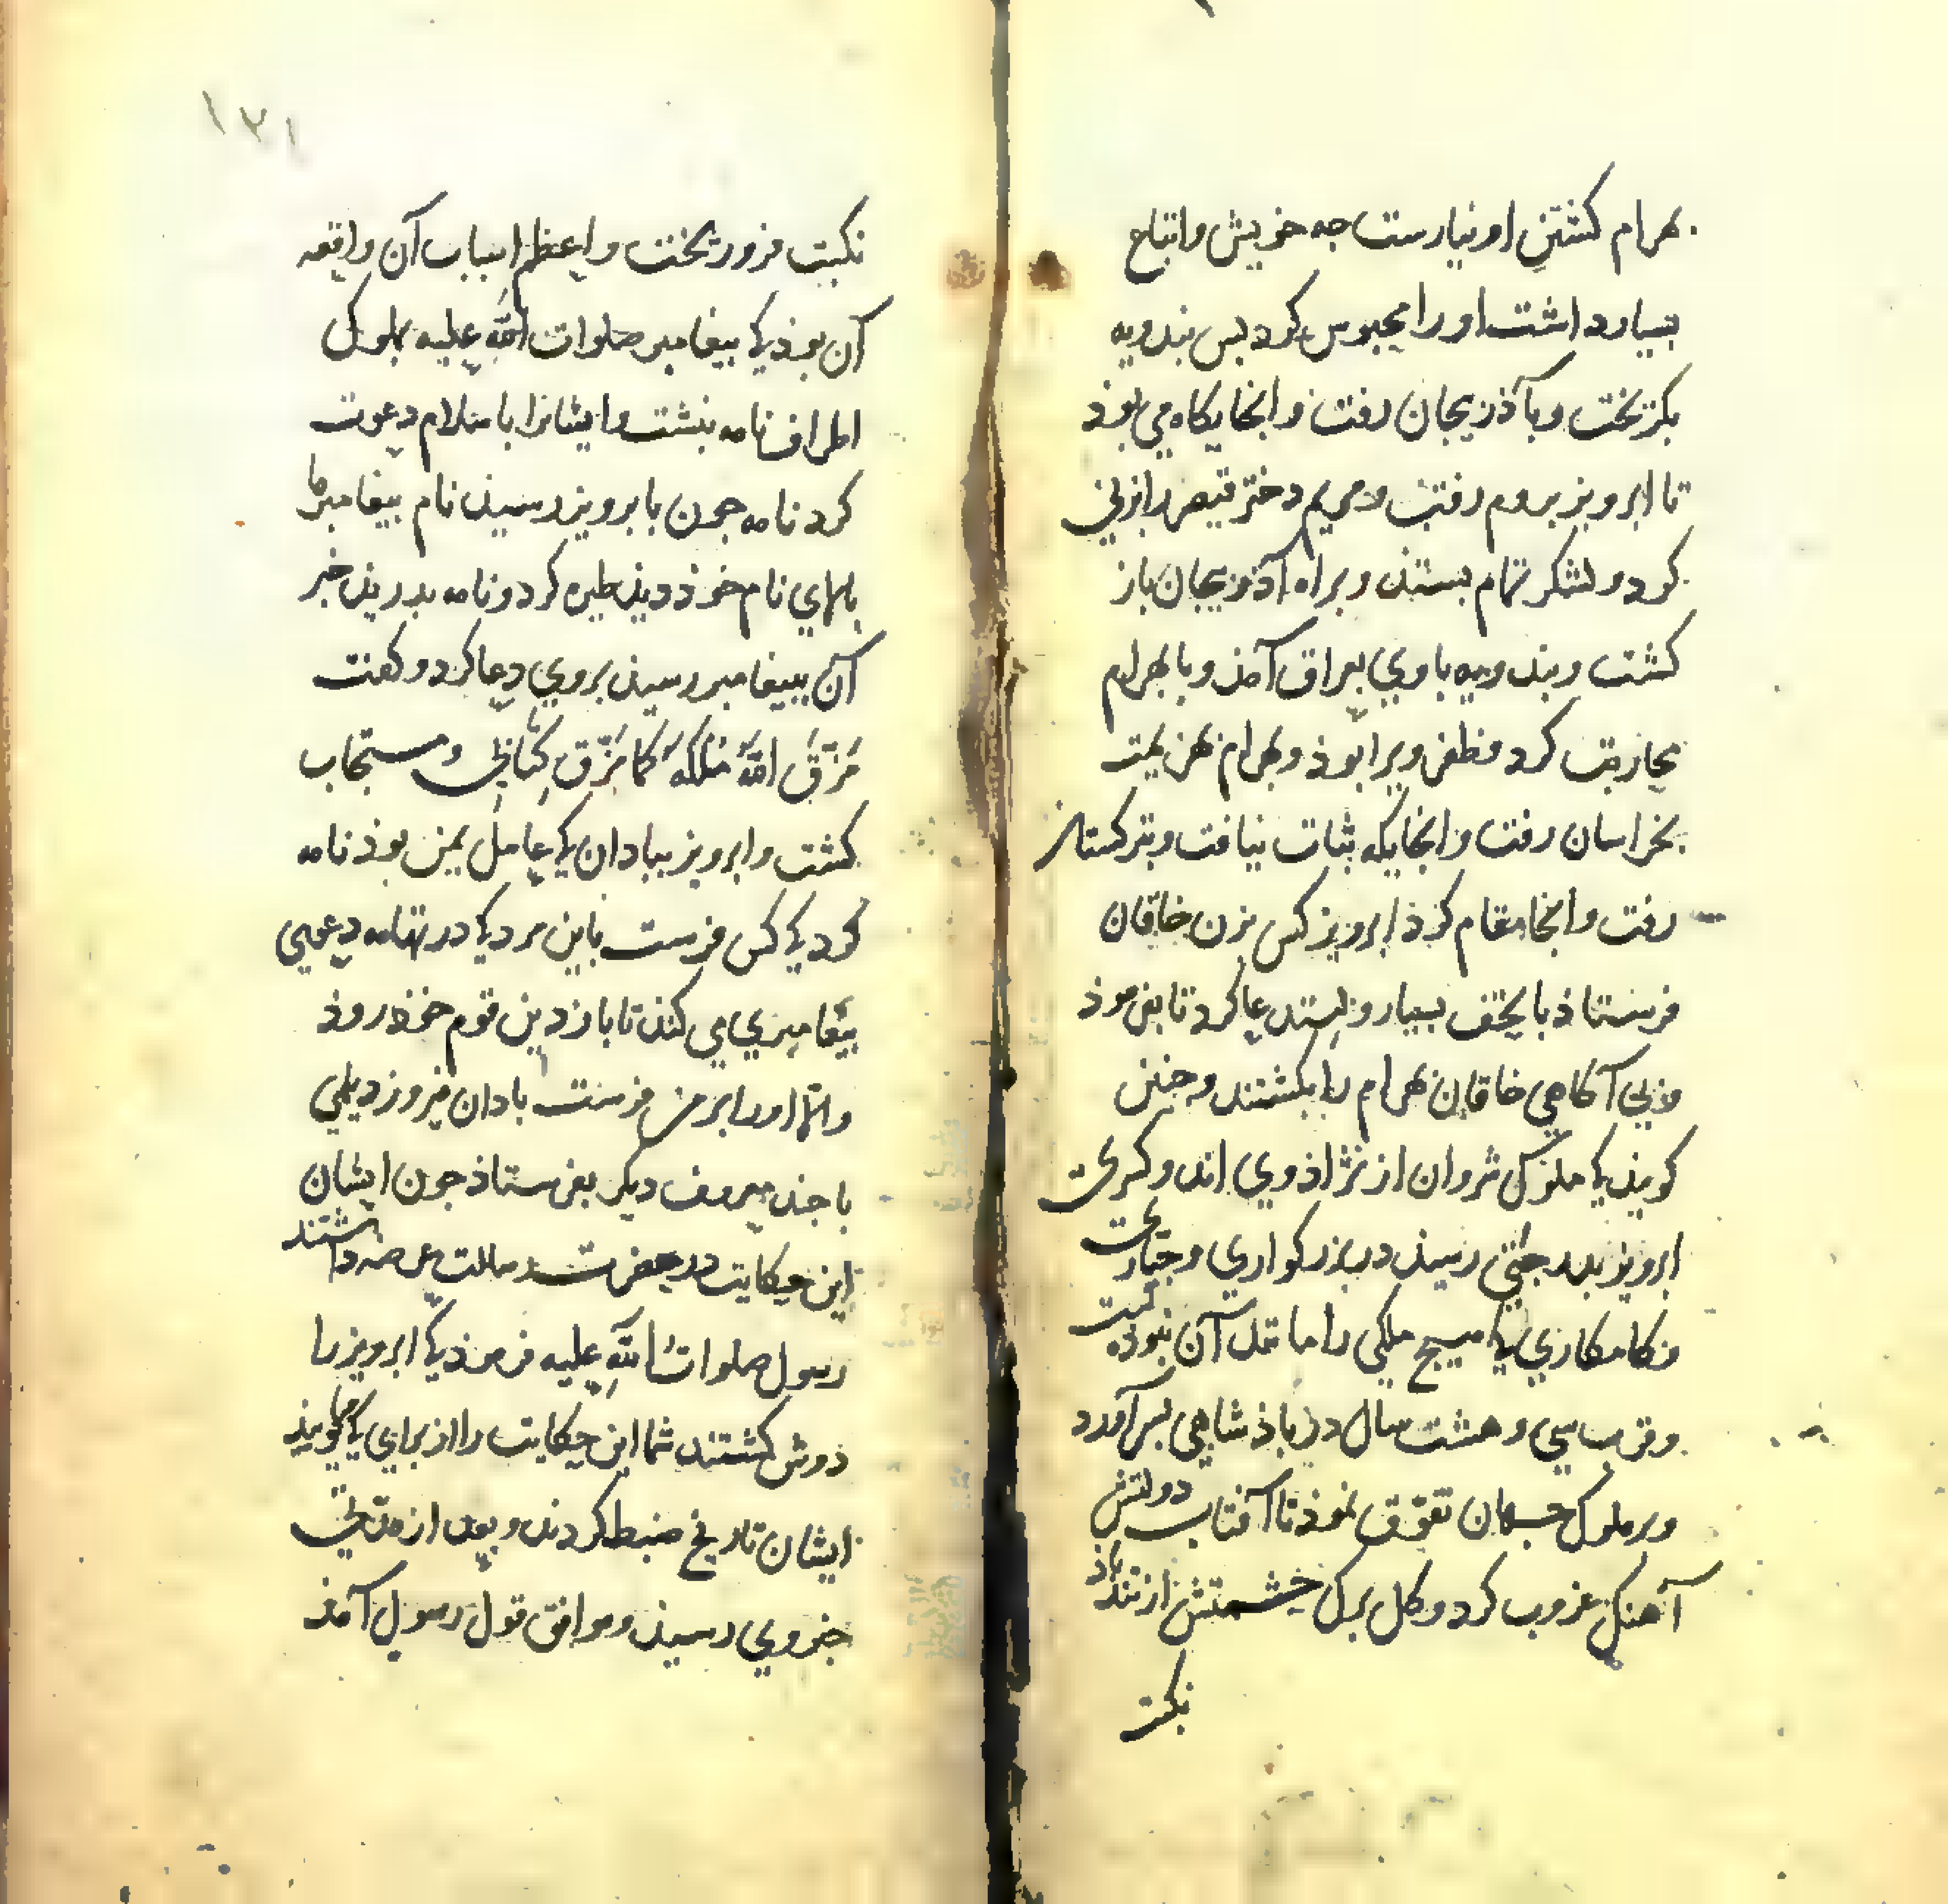 بهرام کشتن او نیارست جه خویش واتباع
بسیار داشت او را محبوس کرد بس بندویه
بکریخت و بآذربیجان رفت و انجایکاه می بوذ
تا ابرویز بروم رفت و مریم دختر قیصر را بزنی
کرد و لشکر تمام بستذ و براه آذربیجان باز
کشت و بندویه با وی بعراق آمذ و با بهرام
محاربت کرد و ظفر ویرا بوذ و بهرام بهزیمت
بخراسان رفت و انجایکه ثبات نیافت و بترکستان
رفت و انجا مقام کرد ابرویز کس بزن خاقان
فرستاذ با تحف بسیار و استدعا کرد تا بفرموذ
و بی آکاهی خاقان بهرام را بکشتند و جنین
کویند کی ملوک شروان از نژاذ وی اند و کسری
ابرویز بدرجتی رسید در بزرکواری و جباری
و کامکاری کی هیچ ملکی را ماتقدم آن نبوده است
و قرب سی و هشت سال در باذشاهی بسر آورد
و بر ملوک جهان تفوق نموذ تا آفتاب دولتش
آهنک غروب کرد و کل برک حشمتش از تند باذ
نکبت
١٢١
نکبت فرو ریخت و اعظم اسباب آن واقعه
آن بوذ کی بیغامبر صلوات الله علیه بملوک
اطراف نامه نبشت و ایشانرا باسلام دعوت
کرد نامه جون بابرویز رسید نام بیغامبر را
بالای نام خوذ دید طیره کرد و نامه بدرید خبر
آن ببیغامبر رسید بر وی دعا کرد و کفت
مَزَّقَ اللهُ مُلکَهُ کَما مَزَّقَ کِتَابِی و مستجاب
کشت و ابرویز ببادان کی عامل یمن بوذ نامه
کرد کی کس فرست باین مرد کی در تهامه دعوی
بیغامبری می کند تا باز دین قوم خوذ روذ
والا او را بر من فرست بادان فیروز دیلمی
با جند معروف دیکر بفرستاذ جون ایشان
این حکایت در حضرت رسالت عرضه داشتند
رسول صلواتُ اللهِ علیه فرموذ کی ابرویز را
دوش کشتند شما این حکایت را از برای کی میکویید
ایشان تاریخ ضبط کردند و بعد از مدتی
خبر وی رسید و موافق قول رسول آمذ